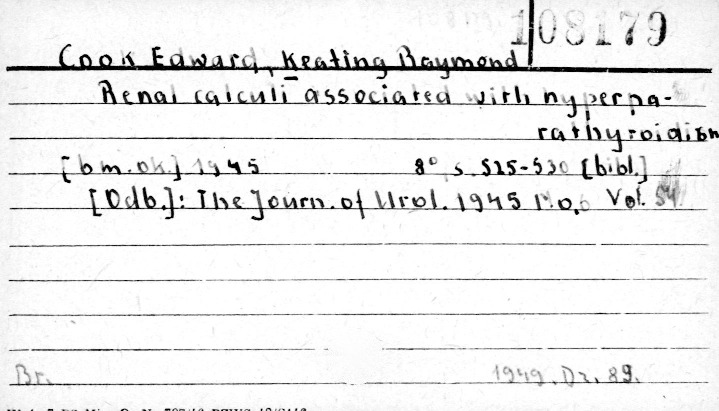 108179
Cook Edward, Keating Raymond
Renal calculi associated with hyperpa-
rathyroidism
[b.m.ok.] 1945 8° s. 525-530 [bibl.]
[Odb.]: The Journ. of Urol. 1945 No. 6 Vol. 54
Br. 1949. Dz. 89.